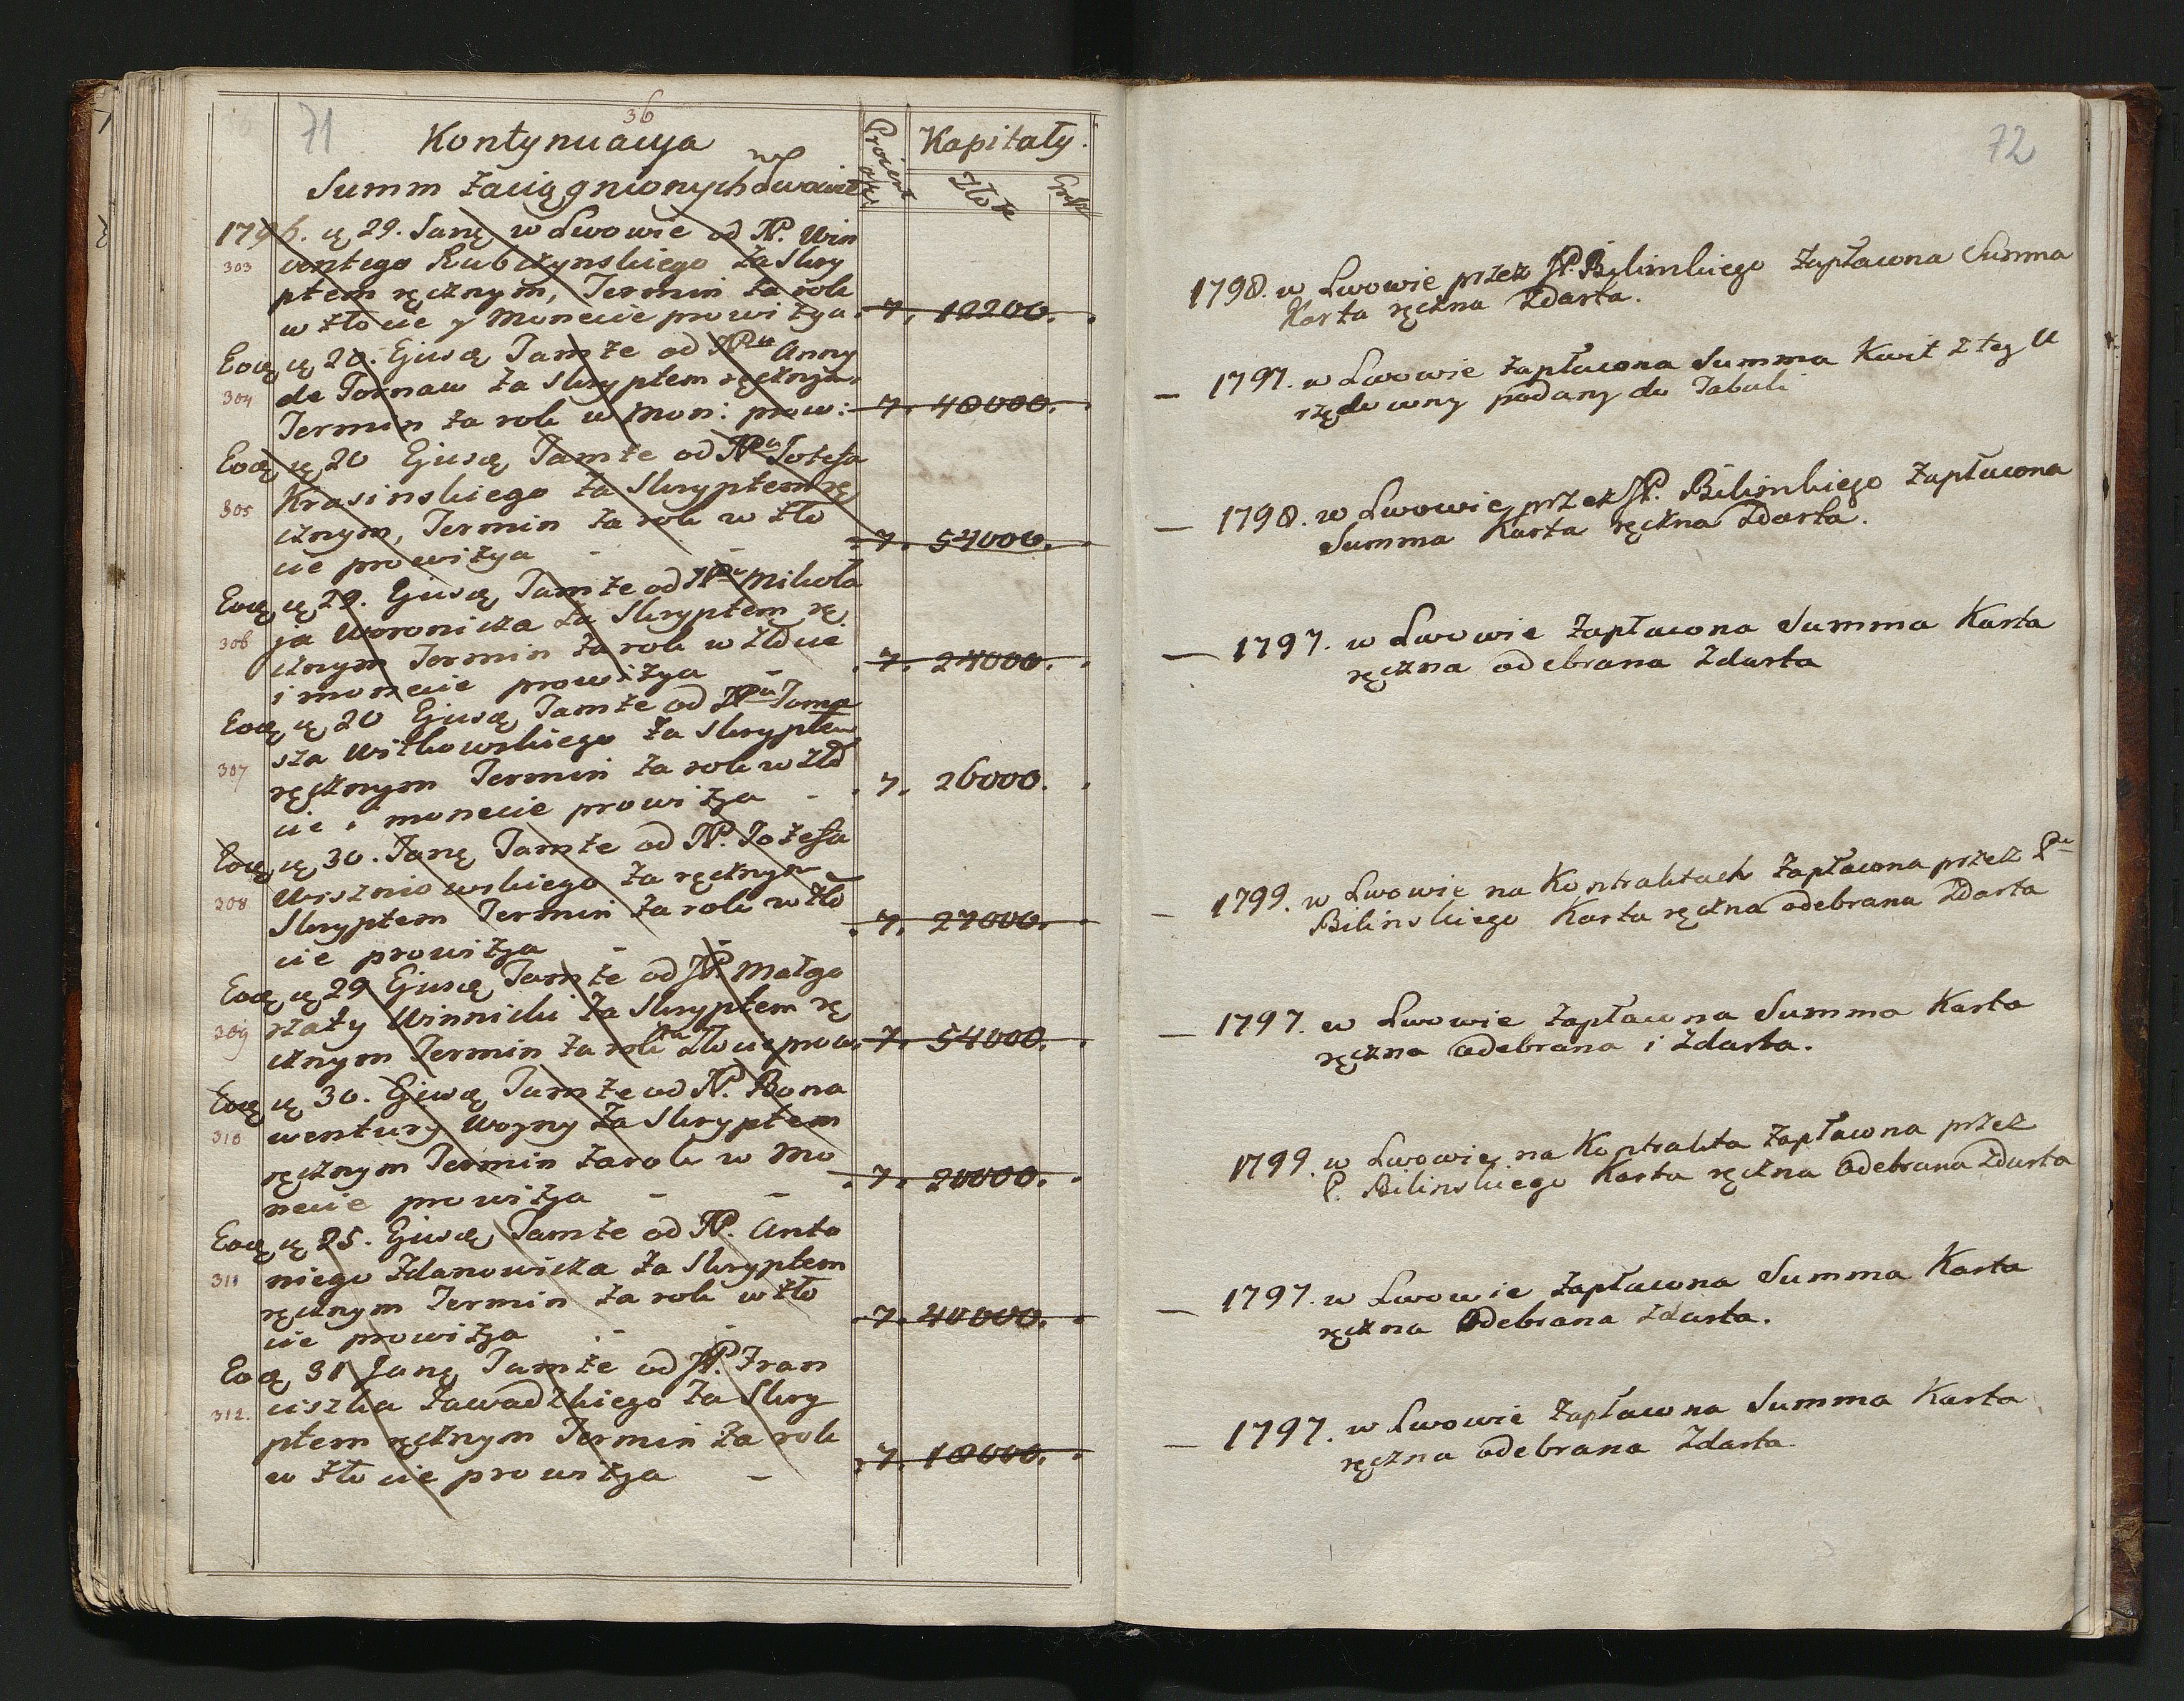 71
36
Kontynuacya
Summ zaciągnionych we Lwowie
Procent
Kapitały.
Złote
1796. ię 29. Janę w Lwowie od JP. Win
303 centego Rubczynskiego za Skry
ptem ręcznym, Termin za rok
w złocie y Monecie prowizya. 7. 12200.
Eoię ię 28. Ejusię Tamże od JPu Anny
304 de Tornaw za Skryptem ręcznym
Termin za rok w Mon: prow: 7. 48000.
Eoię ię 28 Ejusię Tamże od JPu Jozefa
305 Krasinskiego za Skryptem rę
cznym, Termin za rok w zło
cie prowizya - - 7. 54000.
Eoię ię 29. Ejusię Tamże od JPu Mikoła
306 ja Woronicza za Skryptem rę
cznym Termin za rok w złocie
i monecie prowizya - 7. 24000.
Eoię ię 28 Ejusię Tamże od JPu Toma
sza Witkowskiego za Skryptem
307 ręcznym Termin za rok w zło
cie i monecie prowizya - 7. 26000.
Eoię ię 30. Janę Tamże od JP. Jozefa
308 Wiszniowskiego za ręcznym
Skryptem Termin za rok w zło
cie prowizya - - 7. 27000.
Eoię ię 29 Ejusię Tamże od JP. Małgo
309 rzaty Winnicki za Skryptem rę
cznym Termin za rok w złocie prow. 7. 54000.
Eoię ię 30. Ejusię Tamże od JP. Bona
310 wentury Woyny za Skryptem
ręcznym Termin za rok w Mo
necie prowizya - - 7. 20000.
Eoię ię 25. Ejusię Tamże od JP. Anto
311 niego Zdanowicza za Skryptem
ręcznym Termin za rok w zło
cie prowizya - - 7. 40000.
Eoię 31 Janę Tamże od JP. Fran
312. ciszka Zawadzkiego za Skry
ptem ręcznym Termin za rok
w złocie prowizya - 7. 18000.
72
1798. w Lwowie przez JP. Bilinskiego zapłacona Summa
Karta ręczna zdarta.
- 1797. w Lwowie zapłacona Summa Kwit z tey
rzędowny podany do Tabuli
- 1798. w Lwowie przez JP. Bilinskiego zapłacona
Summa Karta ręczna zdarta.
- 1797. w Lwowie zapłacona Summa Karta
ręczna odebrana zdarta
- 1799. w Lwowie na Kontraktach zapłacona przez Pa
Bilinskiego Karta ręczna odebrana zdarta
- 1797. w Lwowie zapłacona Summa Karta
ręczna odebrana i zdarta.
1799. w Lwowie na Kontrakta zapłacona przez
P. Bilinskiego Karta ręczna odebrana zdarta
- 1797. w Lwowie zapłacona Summa Karta
ręczna odebrana zdarta.
- 1797. w Lwowie zapłacona Summa Karta
ręczna odebrana zdarta.